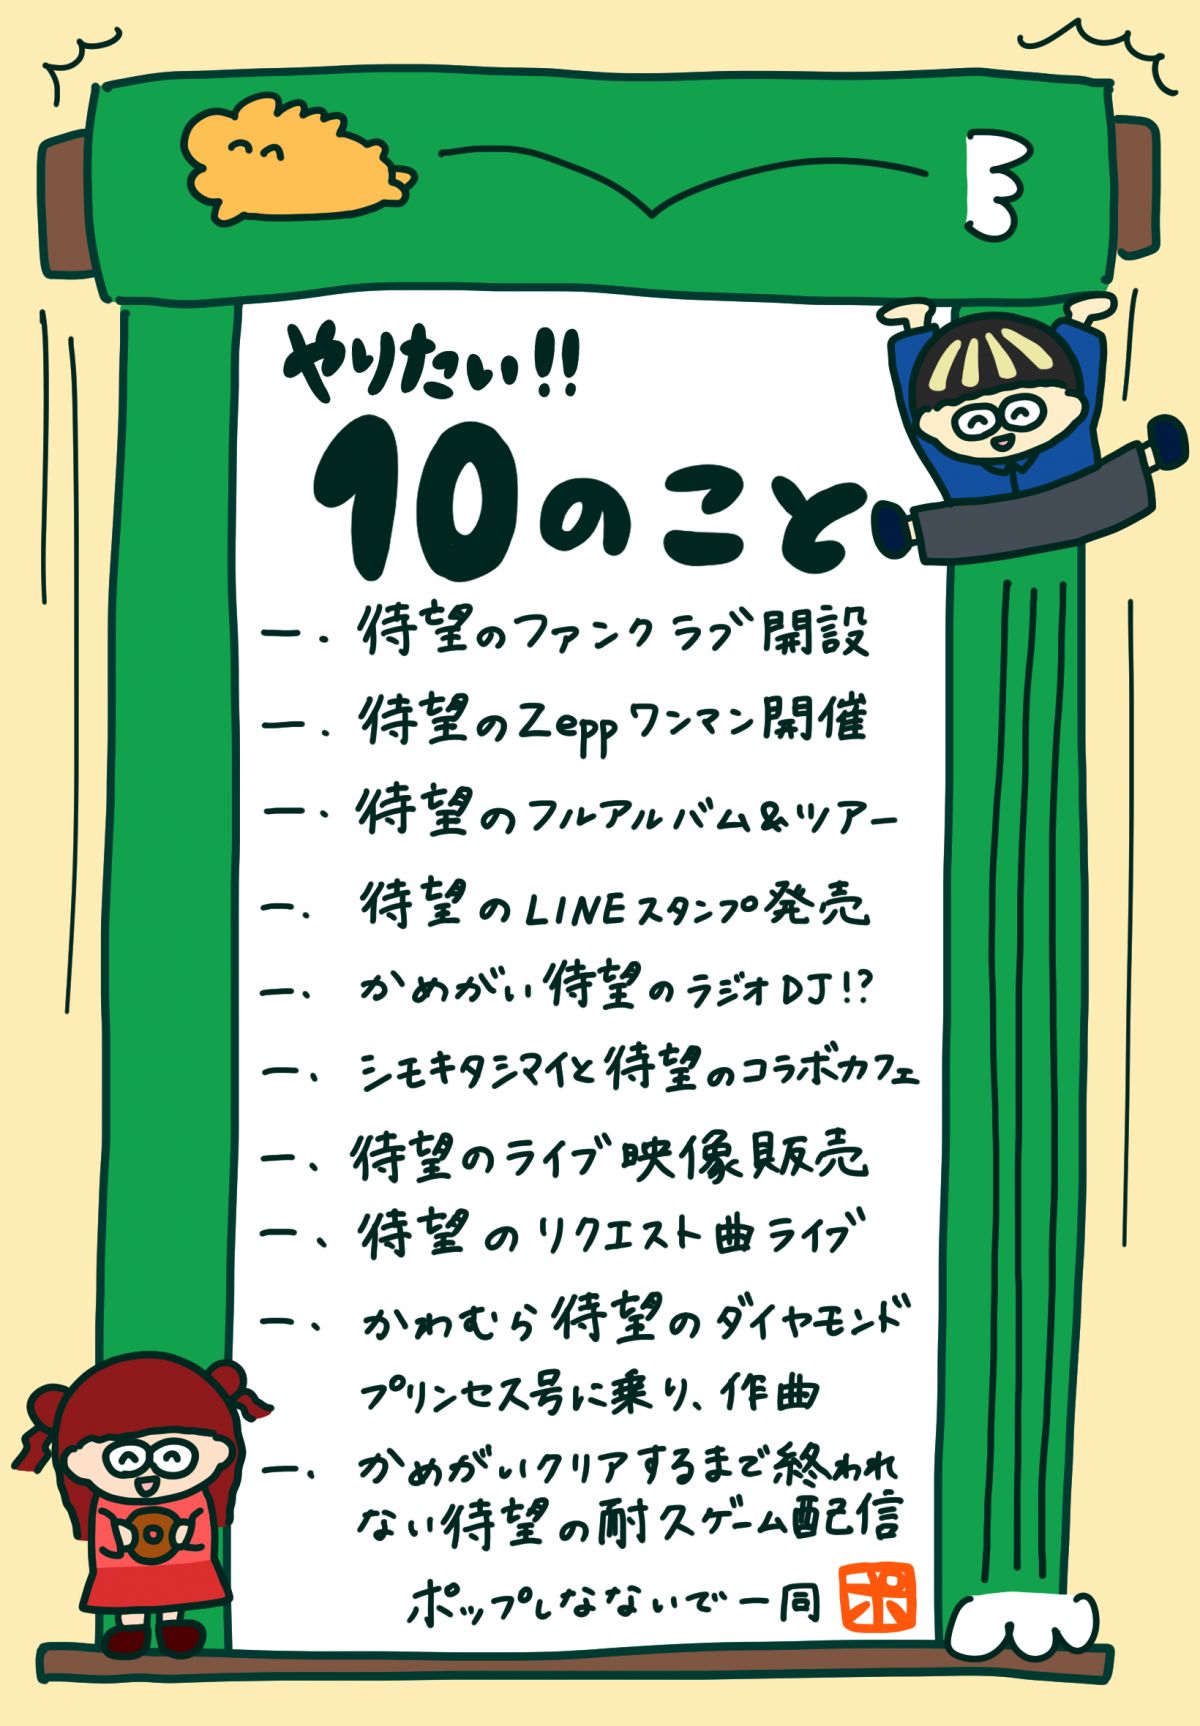 やりたい!!
10のこと
一. 待望のファンクラブ開設
一. 待望のZeppワンマン開催
一. 待望のフルアルバム&ツアー
一. 待望のLINEスタンプ発売
一. かめがい待望のラジオDJ!?
一. シモキタシマイと待望のコラボカフェ
一、待望のライブ映像販売
一、待望のリクエスト曲ライブ
一. かわむら待望のダイヤモンド
プリンセス号に乗り、作曲
一. かめがいクリアするまで終われ
ない待望の耐久ゲーム配信
ポップしなないで一同
ポ